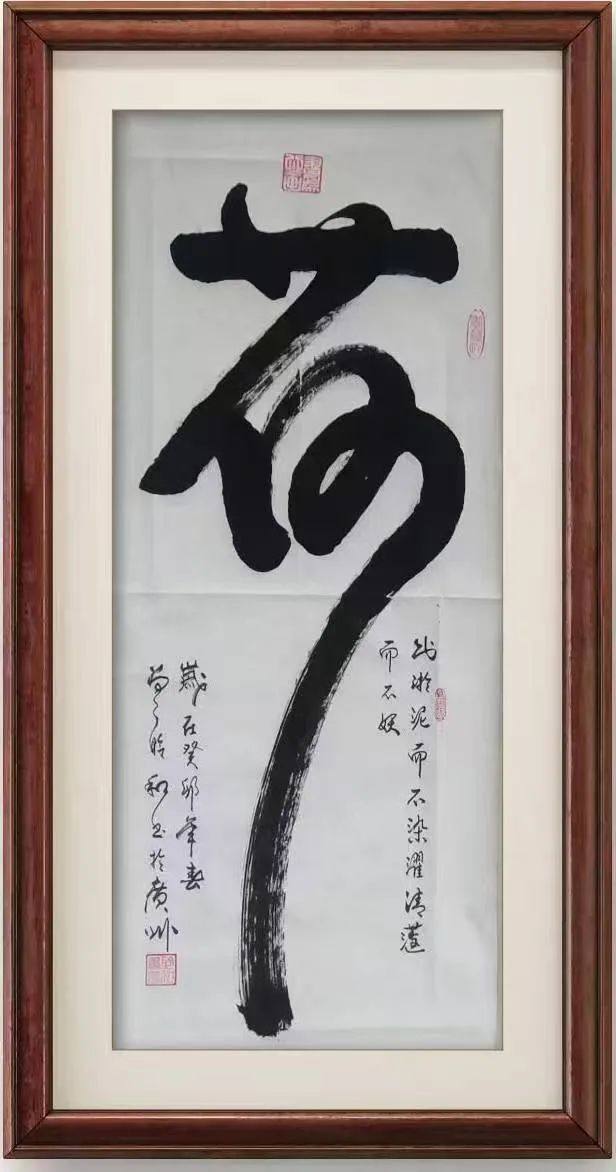 荷
出淤泥而不染濯清蓮
而不妖
歲在癸卯年春
和书於廣州